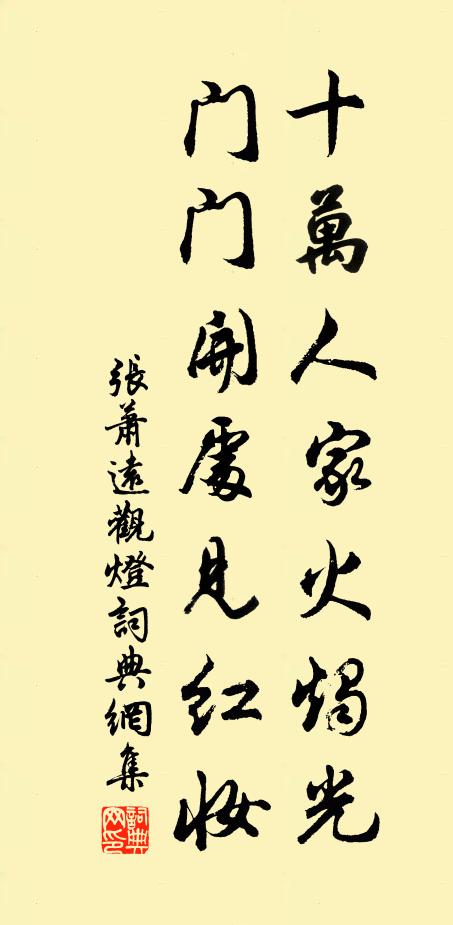 十萬人家火燭光
門門開處見紅妝
張蕭遠觀燈詞典網集
詞典網印